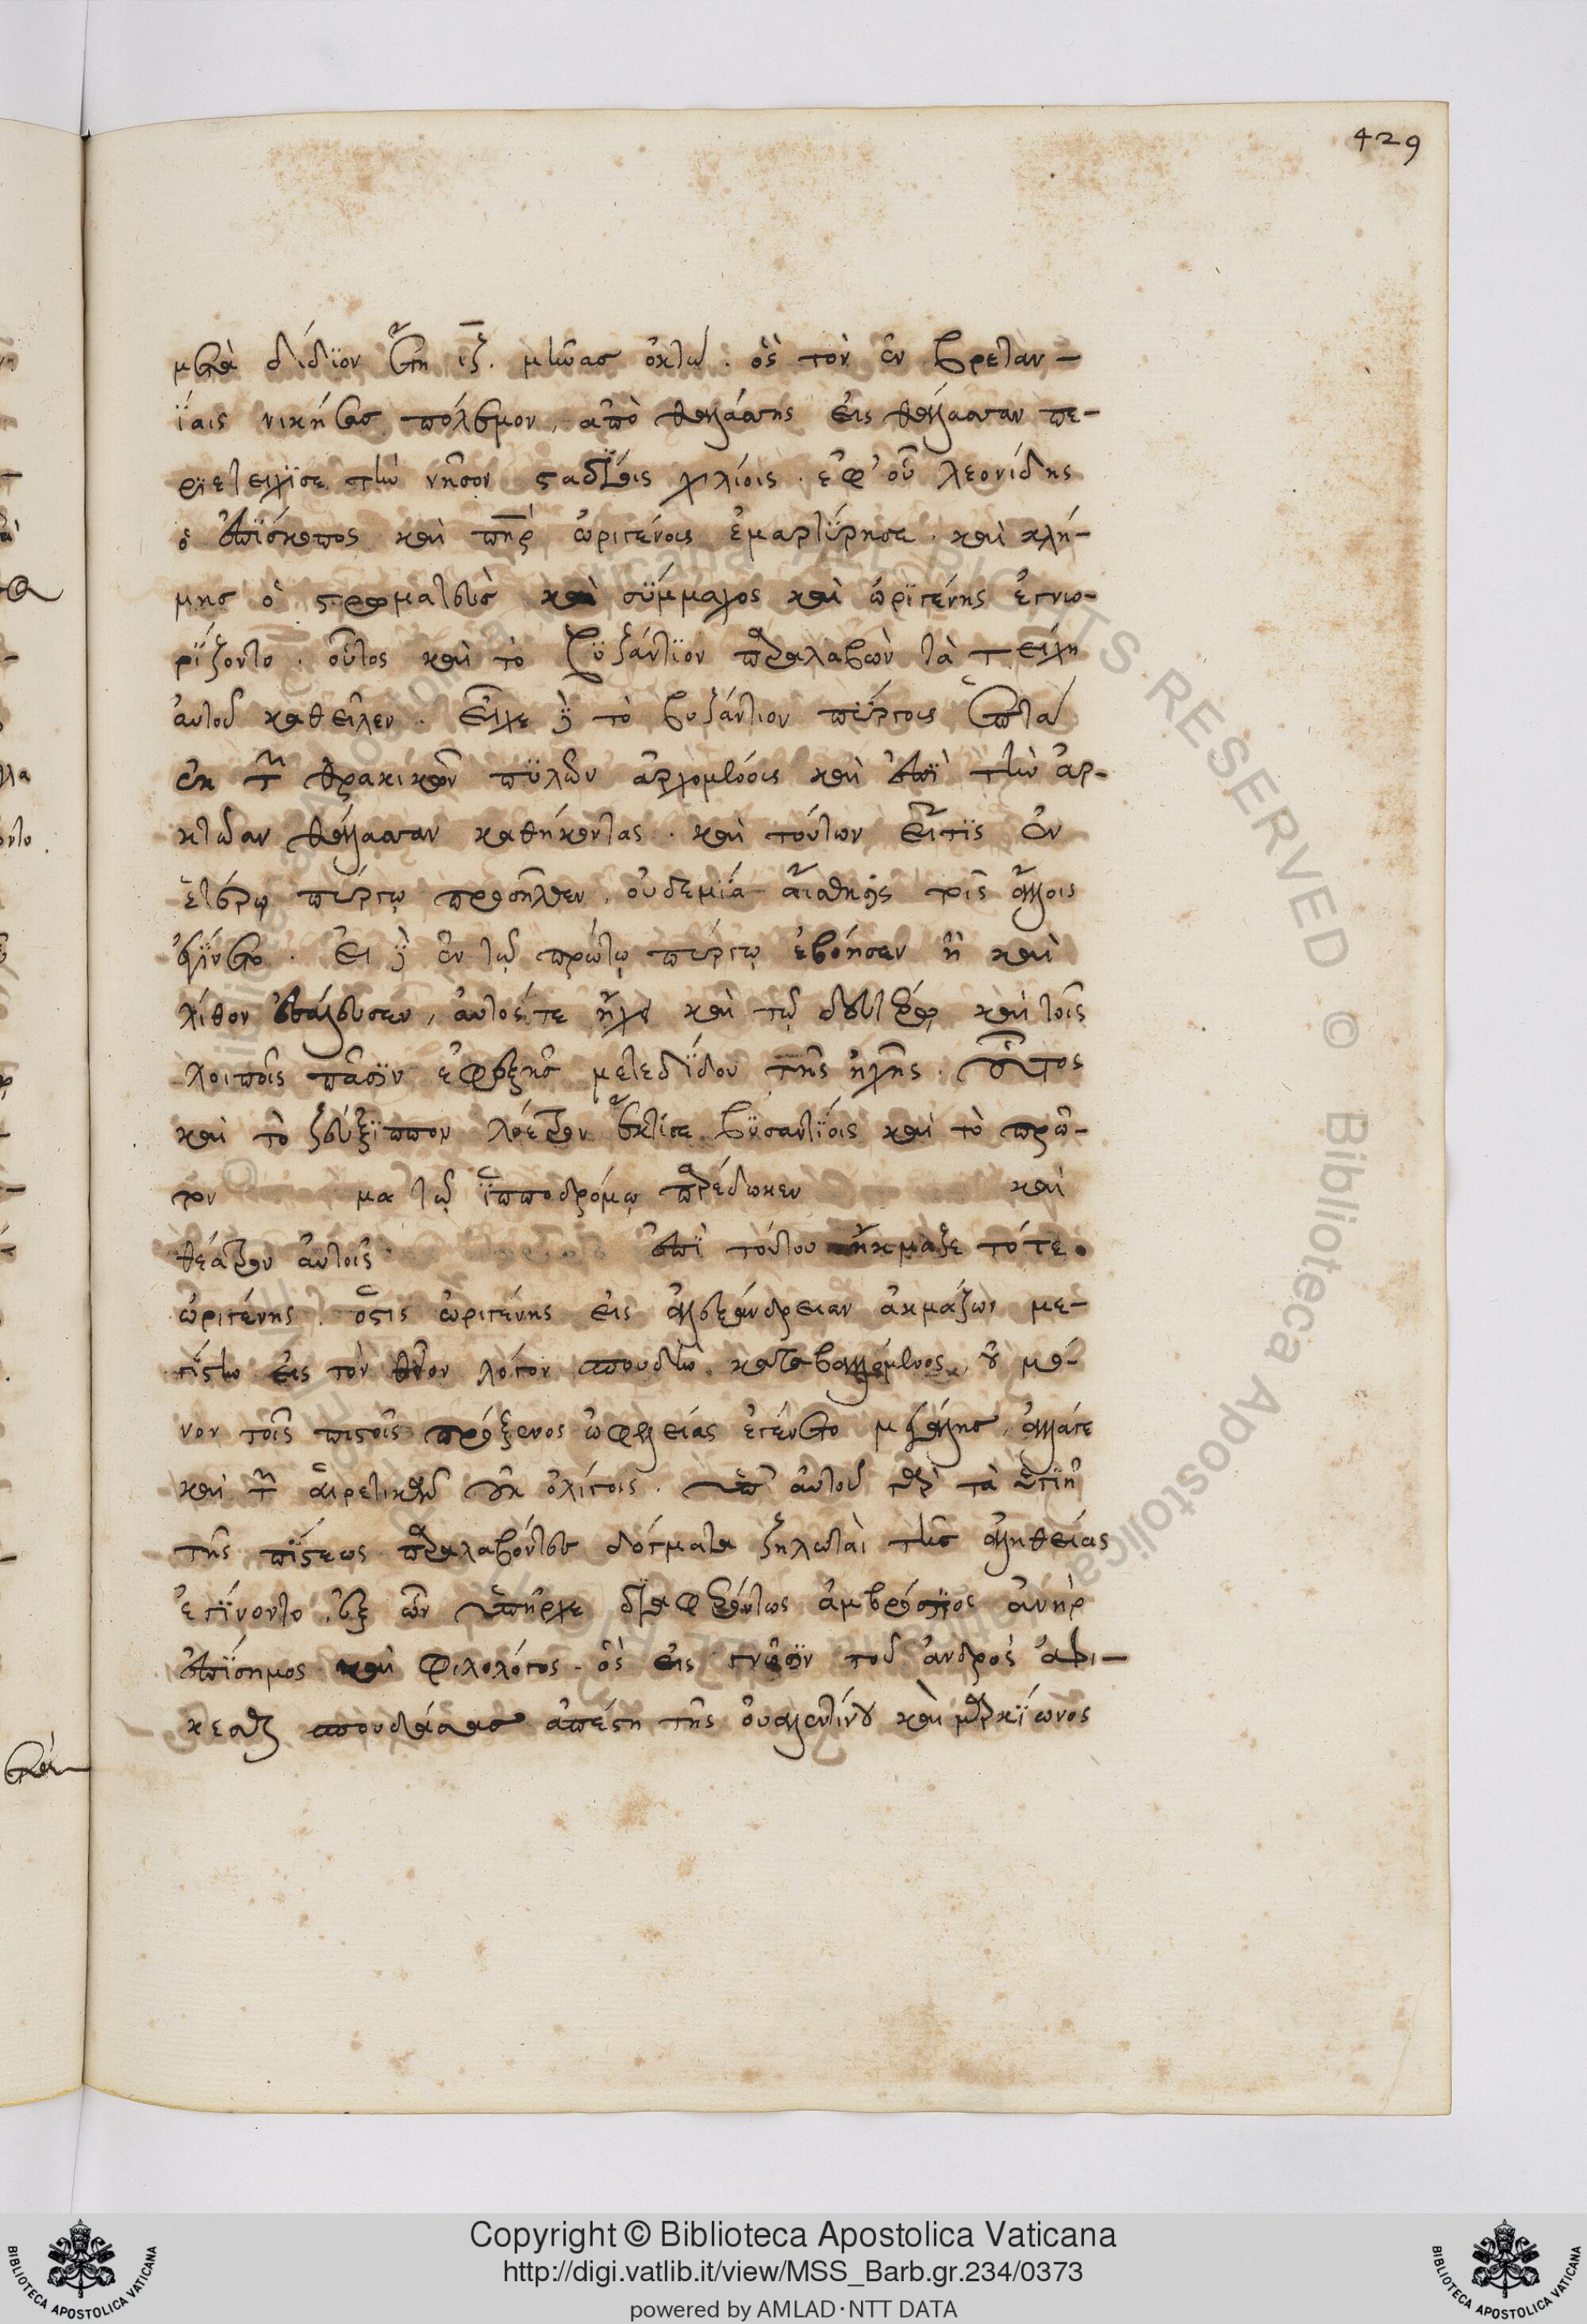 429
μετὰ δίδϊον ἔτη ιζ. μῆνας ὀκτώ. ὃς τὸν ἐν βρεταν-
ΐαις νικήσας πόλεμον, ἀπὸ θαλάσσης εἰς θάλασσαν πε-
ρϊετείχϊσε τὴν νῆσον σταδΐοις χιλίοις. ἐφ' οὗ λεονίδης
ὁ ἐπΐσκοπος καὶ πηρ ὠριγένους ἐμαρτΰρησε. καὶ κλή-
μης ὁ στρωματεὺς καὶ σΰμμαχος καὶ ὠρϊγένης ἐγνω-
ρΐζοντο. οὗτος καὶ τὸ βϋζάντϊον παραλαβὼν τὰ τείχη
αὐτοῦ καθεῖλεν. εἶχε δὲ τὸ βυζάντιον πύργους ἑπτὰ
ἐκ τῶν θρακικῶν πϋλῶν ἀρχομένους καὶ ἐπῒ τὴν ἀρ-
κτώαν θάλασσαν καθήκοντας. καὶ τούτων εἴ τϊς ἐν
ἑτέρῳ πύργῳ προσῆλθεν, οὐδεμία αἴσθησις τοῖς ἄλλοις
ἐγΐνετο. εἰ δὲ ἐν τῷ πρώτῳ πύργῳ ἐβόησεν ἢ καὶ
λίθον ἐπάλευσεν, αὐτός τε ἤχει καὶ τῷ δευτέρῳ καὶ τοῖς
λοιποῖς πᾶσϊν ἐφεξῆς μετεδΐδου τῆς ἠχῆς. οὗτος
καὶ τὸ ζεύξϊππον λόετρον ἔκτϊσε βϋσαντΐοις καὶ τὸ πρῶ-
τον μα τῷ ἱπποδρόμῳ παρέδωκεν καὶ
θέατρον αὐτοῖς ἐπῒ τούτου ἤκμαζε τότε
ὠριγένης. ὅστις ὠριγένης εἰς ἀλεξάνδρειαν ἀκμάζων με-
γΐστην εἰς τὸν θεῖον λόγον σπουδὴν καταβαλλόμενος, οὐ μό-
νον τοῖς πιστοῖς πρόξενος ὠφελείας ἐγένετο μεγάλης, ἀλλάγε
καὶ τῶν αἱρετικῶν οὐκ ὀλίγοις. ὑπ' αὐτοῦ γὰρ τὰ ὑγιῆ
τῆς πΐστεως παραλαβόντες δόγματα ζηλωταὶ τῆς ἀληθείας
ἐγΐνοντο, ἐξ ὧν ὑπῆρχε δϊαφερόντως ἀμβρόσϊος ἀνὴρ
ἐπΐσημος καὶ φιλολόγος. ὃς εἰς γνῶσϊν τοῦ ἀνδρὸς ἀφι-
κέσθαι σπουδάσας ἀπέστη τῆς οὐαλεντίνου καὶ μαρκΐωνος
Copyright © Biblioteca Apostolica Vaticana
http://digi.vatlib.it/view/MSS_Barb.gr.234/0373
powered by AMLAD·NTT DATA